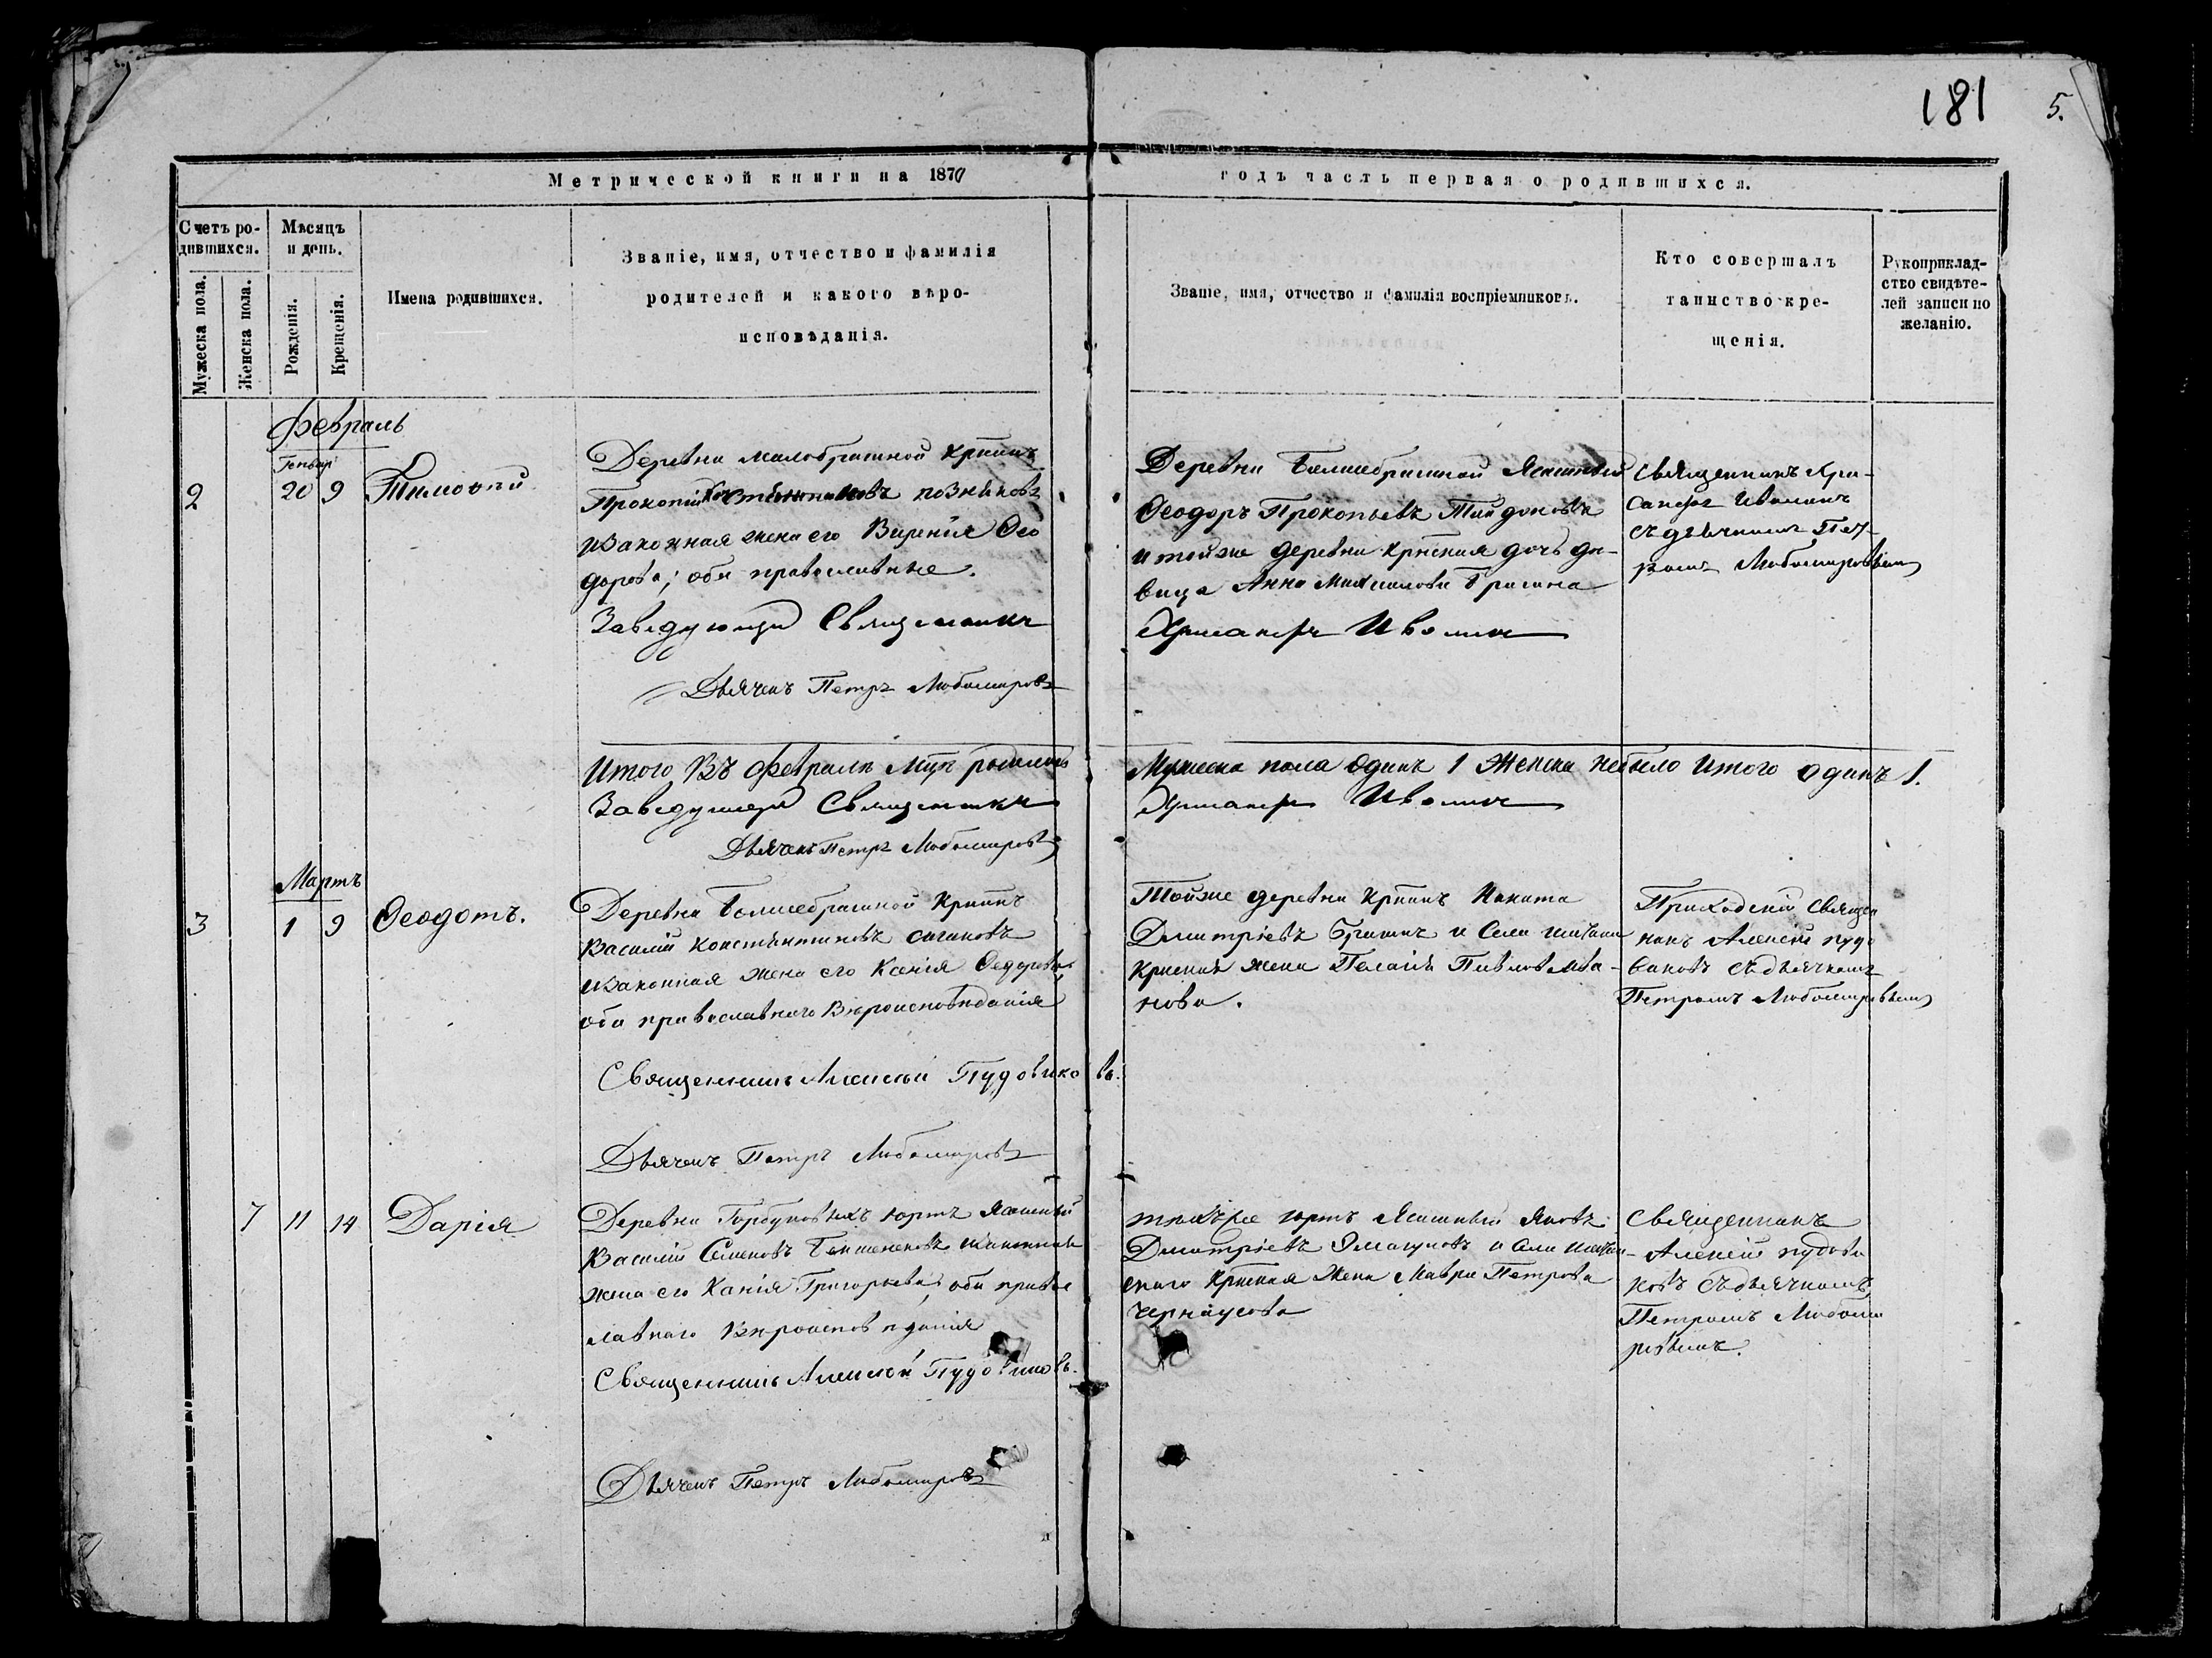 181 5.
Метрической книги на 1870 годъ часть первая о родившихся.
Счетъ ро-
дившихся.
Мужеска пола.
Женска пола.
Мѣсяцъ
и день.
Рожденія.
Крещенія.
Имена родившихся.
Званіе, имя, отчество и фамилія
родителей и какого вѣро-
исповѣданія.
Званіе, имя, отчество и фамилія воспріемниковъ.
Кто совершалъ
таинство кре-
щенія.
Рукоприклад-
ство свидѣте-
лей записи по
желанію.
Февраль
Генвар
2 20 9 Тимофѣй
Деревни Малобрашной Крпнинъ
Прокопій позняковъ
изаконная жена его Ѳео
дорова; оба православные.
Завѣдующій Священникъ
Дьячекъ Петръ Любомировъ
Деревни Большебрашной Ясашный
Ѳеодоръ Прокопьевъ
и тойже деревни крпская дочь дѣ-
вица Анна Михаилова
Хрисанфъ Ивонинъ
священникъ Хри-
санфъ Ивонинъ
съ дьячкомъ Пет-
ромъ Любомировымъ
Итого въ Февралѣ Мцѣ родилось Мужеска пола одинъ 1 Женска небыло Итого одинъ 1.
Завѣдующій Священникъ Хрисанфъ Ивонинъ
Дьячекъ Петръ Любомировъ
Мартъ
3 1 9 Ѳеодотъ.
Деревни Большебрашной Крпнинъ
Василій Константиновъ
изаконная жена его Ксенія Ѳедорова
оба православнаго Вѣроисповѣданія
Священникъ Алексѣй Пудовиковъ.
Дьячекъ Петръ Любомировъ
Тойже деревни Крпнинъ Никита
Дмитріевъ и Села
Крпская жена Пелагія Ива-
нова.
Приходскій Священ
никъ Алексѣй пудо
виковъ съ дьячкомъ
Петромъ Любомировымъ
7 11 14 Дарія
Деревни Горбуновыхъ юртъ Ясашный
Василій Семеновъ изаконная
жена его Ксенія Григорьева, оба правос
лавнаго Вѣроисповѣданія
Священникъ Алексѣй Пудовиковъ.
Дьячекъ Петръ Любомировъ
тѣхъже юртъ Ясашный Яковъ
Дмитріевъ и Села
скаго Крпская Жена Мавра Петрова
Черноусова
Священникъ
Алексѣй пудови
ковъ съ дьячкомъ
Петромъ Любоми
ровымъ.